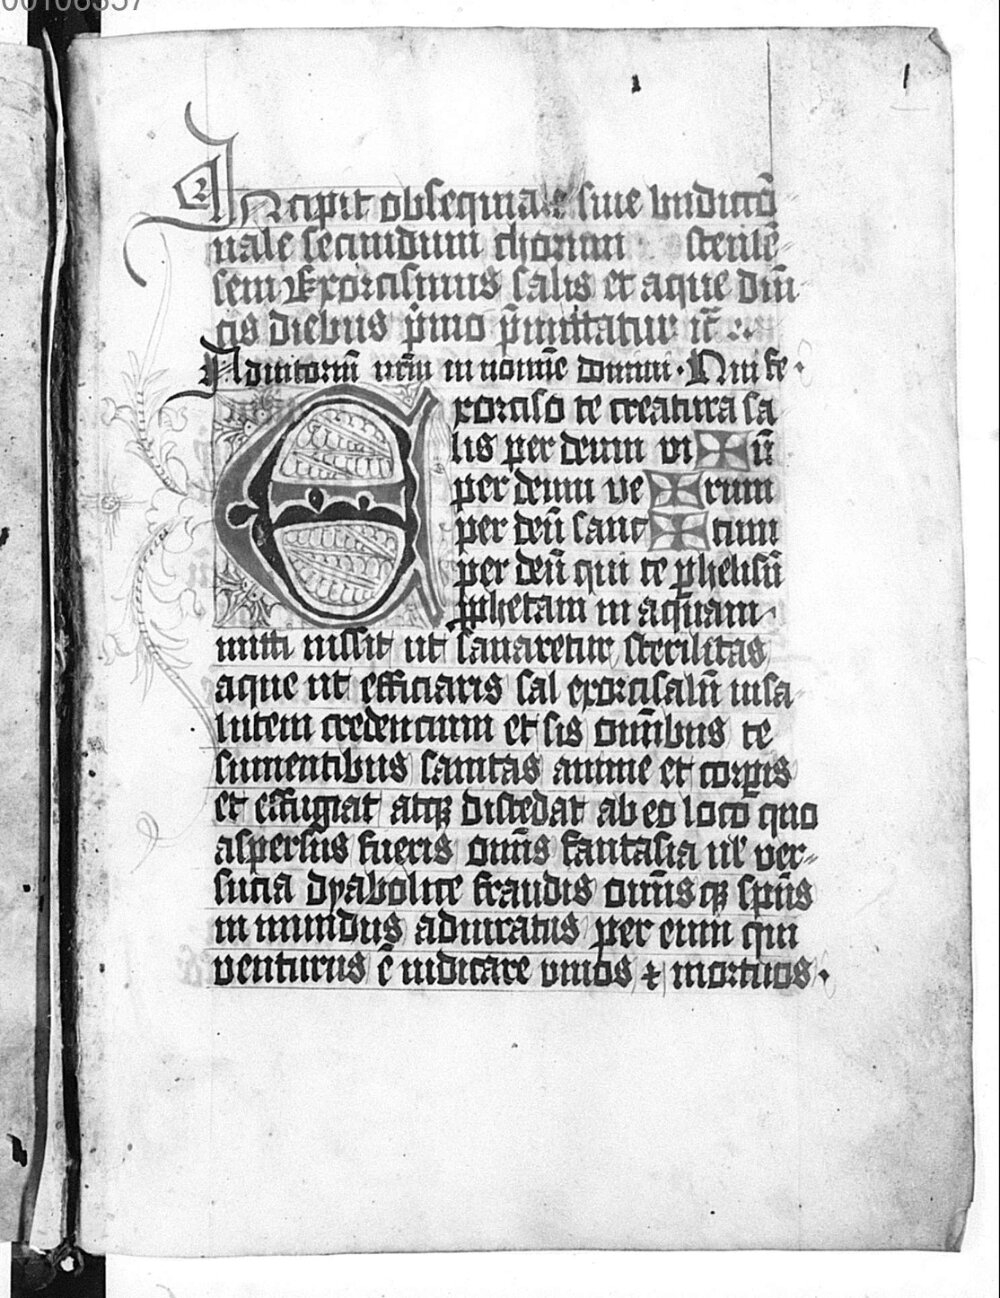 00106357
1 1
Incipit obsequiale siue bndictō
nale secundum chorum
sem Exorcismus salis et aque dm̄
cis diebus p̄mo p̄mittatur
Adiutoriū nr̄m in nomīe domini · Qui fe ·
Exorciso te creatura sa
lis per deum vi ✠ ū
per deum ve ✠ rum
per deū sanc ✠ tum
per deū qui te p helisū
pphetam in aquam
mitti iussit ut sanaretur sterilitas
aque ut efficiaris sal exorcisatū in sa
lutem credencium et sis omībus te
sumentibus sanitas anime et corpīs
et effugiat atqꝫ discedat ab eo loco quo
aspersus fueris om̄is fantasia ul ver-
sucia dyabolice fraudis om̄is qꝫ spūs
in mundus adiuratus per eum qui
venturus ē iudicare viuos ⁊ mortuos ·